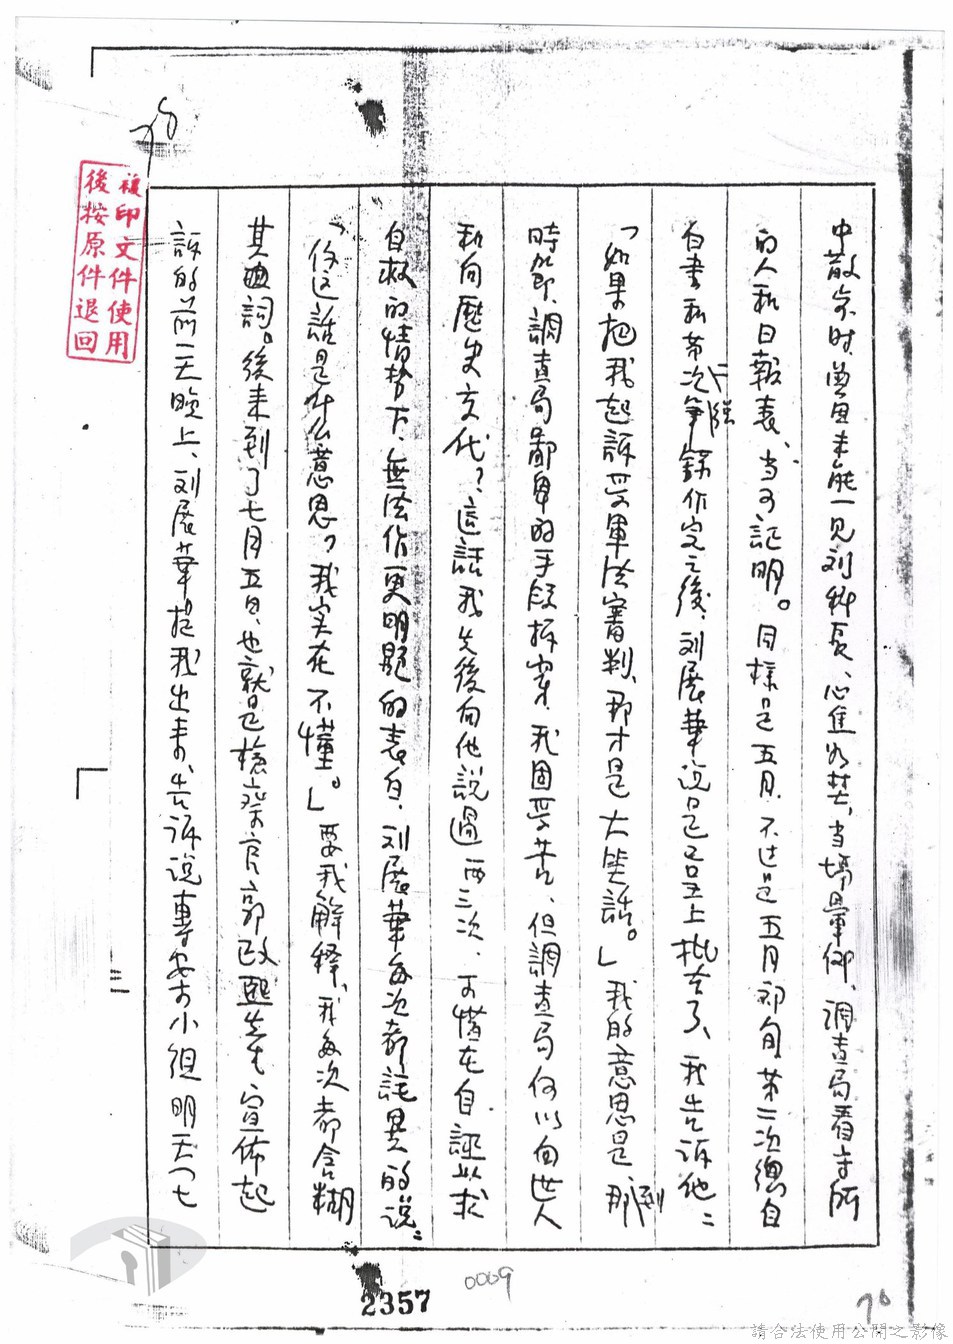 中散步时、曾因未能一见刘科長、心焦如焚、当場暈倒、調查局看守所
的人和日報表、当可証明。同樣是五月、不过是五月初旬第二次總自
白書和第二次筆錄作完之後、刘展華说是已呈上批去了、我告訴他：
「如果把我起訴受軍法審判、那才是大笑話。」我的意思是、到那
時節、調查局鄙卑的手段拆穿、我固受苦、但調查局何以向世人
和向歷史交代？這話我先後向他說過两三次、可惜在自誣以求
自救的情势下、無法作更明顯的表白、刘展華每次都詫異的说：
「你这話是什么意思？我实在不懂。」要我解釋、我每次都含糊
其詞。後来到了七月五日、也就是檢察官郭政熙先生宣佈起
訴的前一天晚上、刘展華提我出来、告诉说專案小组明天(七
複印文件使用
後按原件退回
2357
0009
76
請合法使用公開之影像